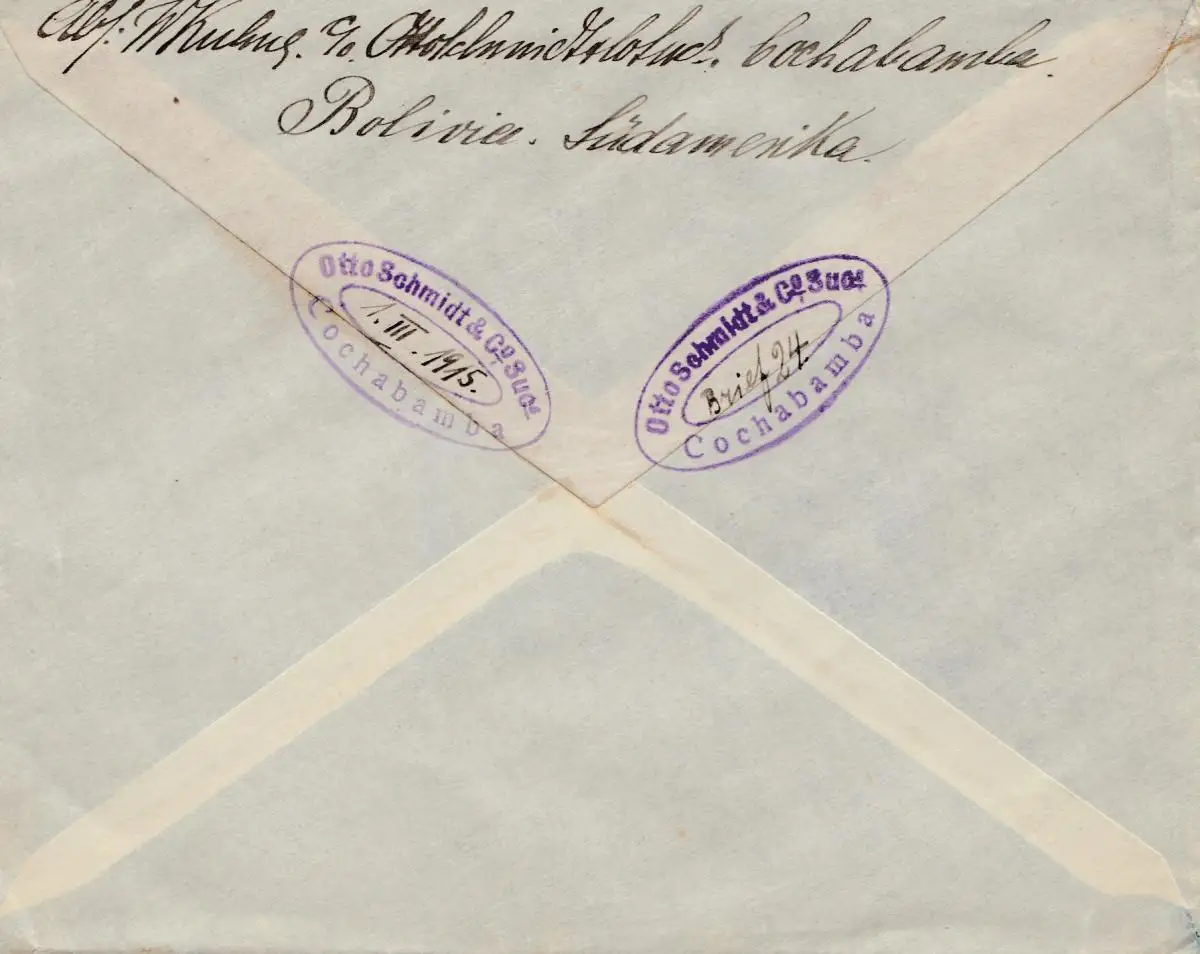 Abs: WKuhns. c/o. Otto Schmidt & Co Sucs. Cochabamba.
Bolivia. Südamerika.
Otto Schmidt & Co Sucs
1. III. 1915.
Cochabamba
Otto Schmidt & Co Sucs
Brief 24.
Cochabamba